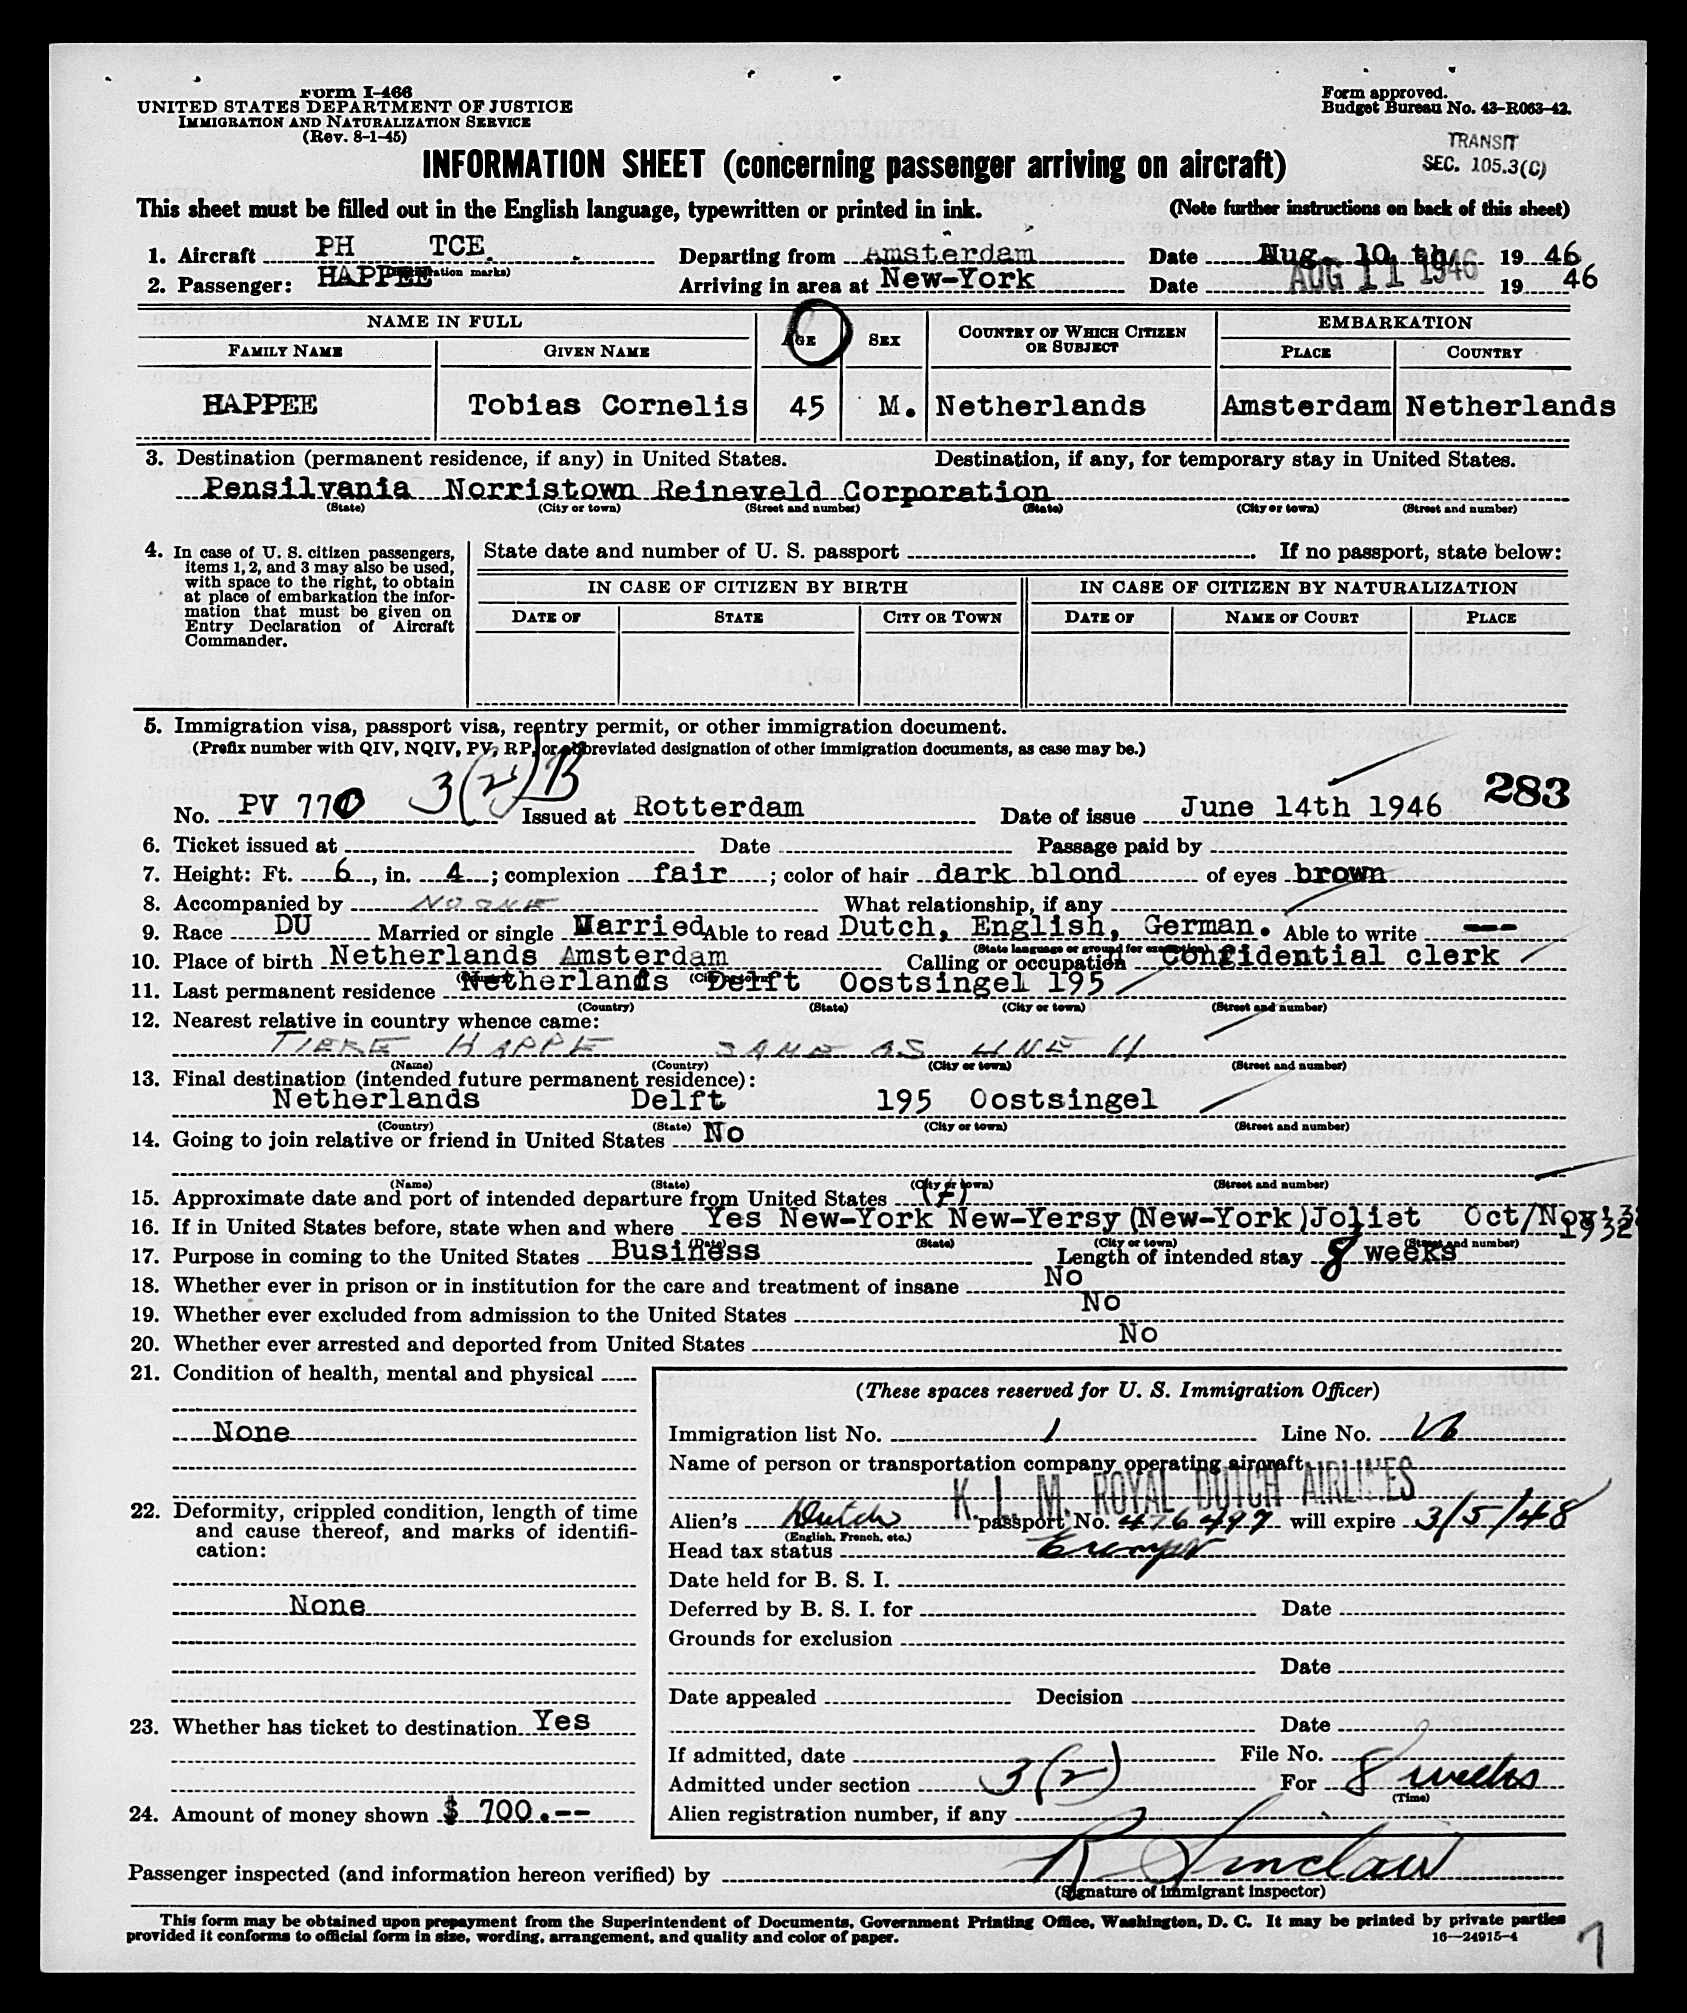 Form I-466
UNITED STATES DEPARTMENT OF JUSTICE
IMMIGRATION AND NATURALIZATION SERVICE
(Rev. 8-1-45)
Form approved.
Budget Bureau No. 43-R063-42.
TRANSIT
SEC. 105.3(C)
INFORMATION SHEET (concerning passenger arriving on aircraft)
This sheet must be filled out in the English language, typewritten or printed in ink. (Note further instructions on back of this sheet)
1. Aircraft PH TCE. Departing from Amsterdam Date Aug. 10 th 19 46
(Registration marks)
2. Passenger: HAPPEE Arriving in area at New-York Date AUG 11 1946 19 46
NAME IN FULL AGE SEX COUNTRY OF WHICH CITIZEN OR SUBJECT EMBARKATION
FAMILY NAME GIVEN NAME PLACE COUNTRY
HAPPEE Tobias Cornelis 45 M. Netherlands Amsterdam Netherlands
3. Destination (permanent residence, if any) in United States. Destination, if any, for temporary stay in United States.
Pensilvania Norristown Reineveld Corporation
(State) (City or town) (Street and number) (State) (City or town) (Street and number)
4. In case of U. S. citizen passengers, items 1, 2, and 3 may also be used, with space to the right, to obtain at place of embarkation the information that must be given on Entry Declaration of Aircraft Commander.
State date and number of U. S. passport If no passport, state below:
IN CASE OF CITIZEN BY BIRTH IN CASE OF CITIZEN BY NATURALIZATION
DATE OF STATE CITY OR TOWN DATE OF NAME OF COURT PLACE
5. Immigration visa, passport visa, reentry permit, or other immigration document.
(Prefix number with QIV, NQIV, PV, RP, or abbreviated designation of other immigration documents, as case may be.)
3(2) B
283
No. PV 770 Issued at Rotterdam Date of issue June 14th 1946
6. Ticket issued at Date Passage paid by
7. Height: Ft. 6, in. 4; complexion fair; color of hair dark blond of eyes brown
8. Accompanied by NO ONE What relationship, if any
9. Race DU Married or single Married Able to read Dutch, English, German. Able to write --
(State language or ground for exemption)
10. Place of birth Netherlands Amsterdam Calling or occupation Confidential clerk
(Country) (City or town)
11. Last permanent residence Netherlands Delft Oostsingel 195
(Country) (State) (City or town) (Street and number)
12. Nearest relative in country whence came:
HAPPE SAME AS LINE 11
(Name) (Country) (City or town) (Street and number)
13. Final destination (intended future permanent residence):
Netherlands Delft 195 Oostsingel
(Country) (State) (City or town) (Street and number)
14. Going to join relative or friend in United States No
(Name) (State) (City or town) (Street and number)
15. Approximate date and port of intended departure from United States
16. If in United States before, state when and where Yes New-York New-Yersy (New-York)Joliet Oct/Nov 1932
(Date) (State) (City or town) (Street and number)
17. Purpose in coming to the United States Business Length of intended stay 8 weeks
18. Whether ever in prison or in institution for the care and treatment of insane No
19. Whether ever excluded from admission to the United States No
20. Whether ever arrested and deported from United States No
21. Condition of health, mental and physical
None
22. Deformity, crippled condition, length of time and cause thereof, and marks of identification:
None
23. Whether has ticket to destination Yes
24. Amount of money shown $ 700.--
(These spaces reserved for U. S. Immigration Officer)
Immigration list No. 1 Line No.
Name of person or transportation company operating aircraft
K. L. M. ROYAL DUTCH AIRLINES
Alien's Dutch passport No. 476497 will expire 3/5/48
(English, French, etc.)
Head tax status Exempt
Date held for B. S. I.
Deferred by B. S. I. for Date
Grounds for exclusion
Date
Date appealed Decision
Date
If admitted, date File No.
Admitted under section 3(2) For 8 weeks
(Time)
Alien registration number, if any
Passenger inspected (and information hereon verified) by R Sinclair
(Signature of immigrant inspector)
This form may be obtained upon prepayment from the Superintendent of Documents, Government Printing Office, Washington, D. C. It may be printed by private parties
provided it conforms to official form in size, wording, arrangement, and quality and color of paper. 16—24915-4
7